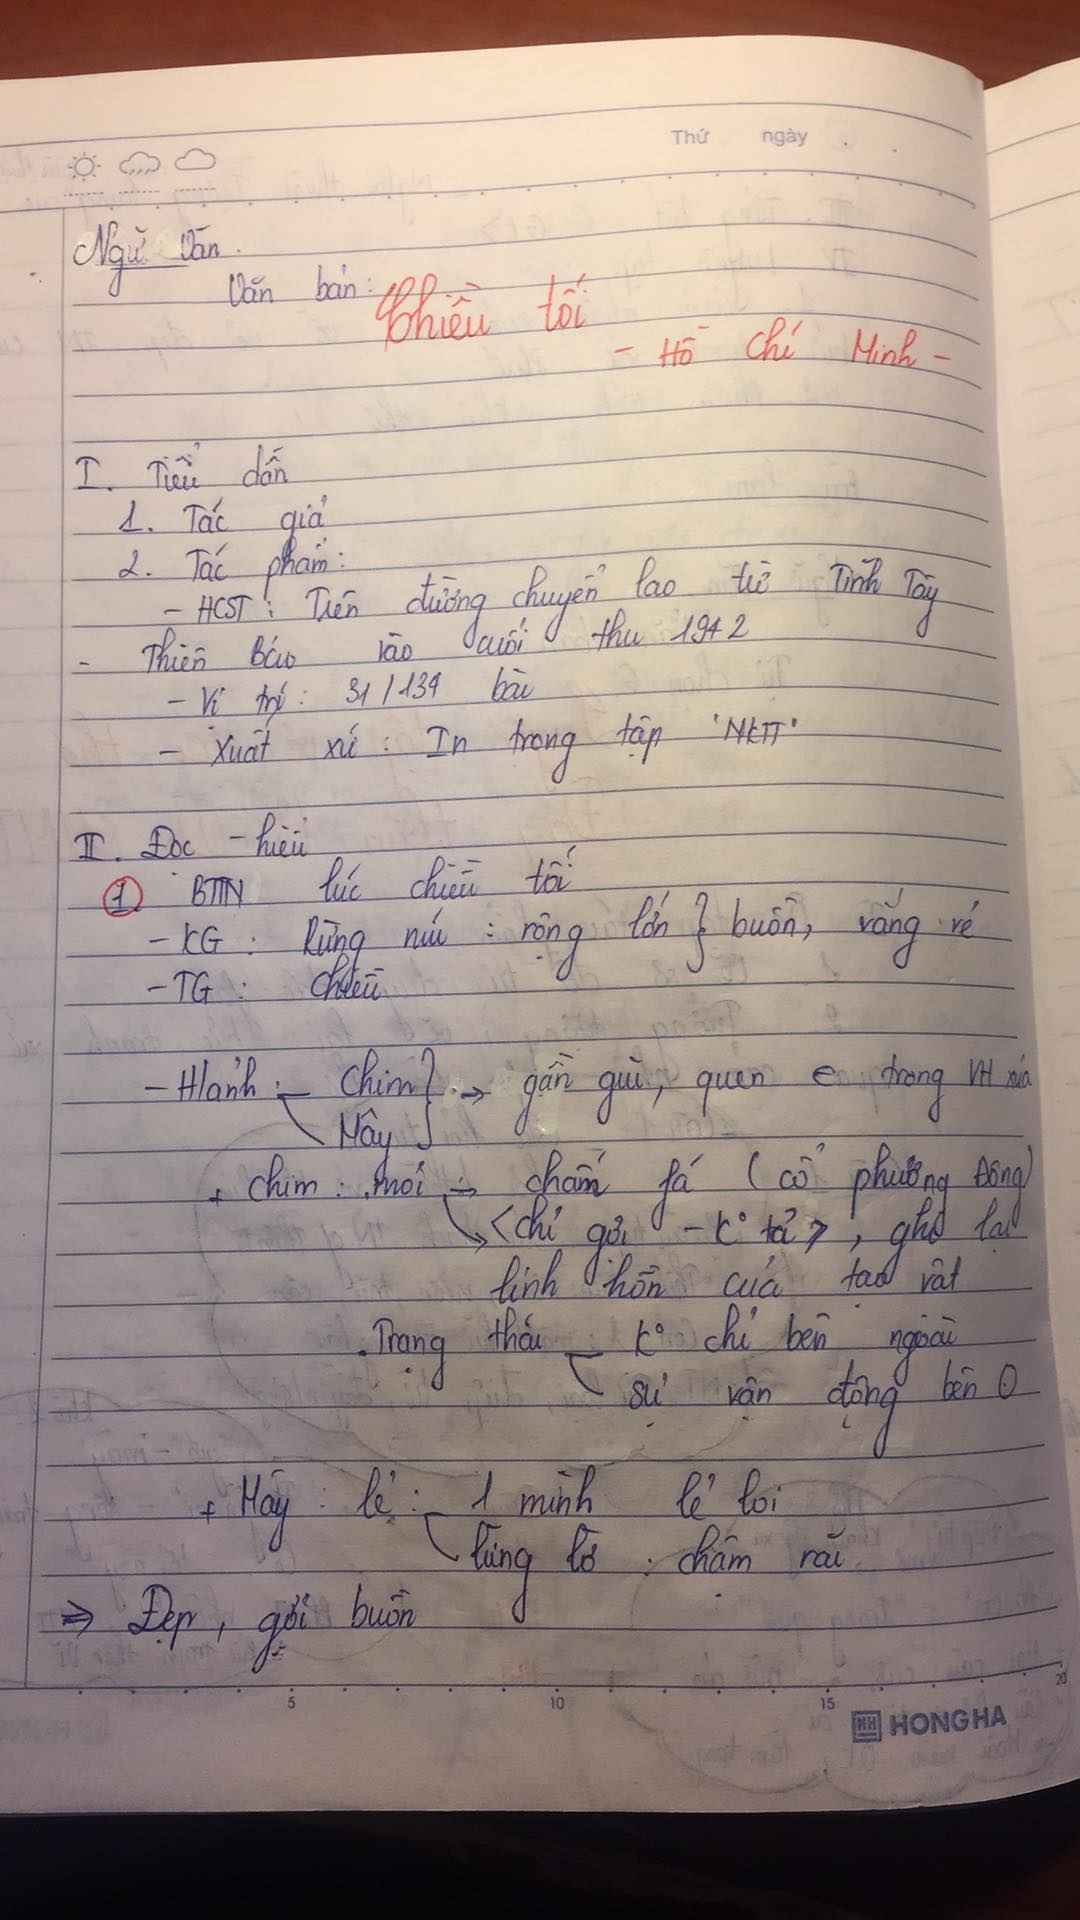 Thứ ngày
Ngữ Văn.
Văn bản: Chiều tối
- Hồ Chí Minh -
I. Tiểu dẫn
1. Tác giả
2. Tác phẩm:
- HCST: Trên đường chuyển lao từ Tĩnh Tây
- Thiên Bảo vào cuối thu 1942
- Vị trí: 31/134 bài
- Xuất xứ: In trong tập "NKTT"
II. Đọc - hiểu
1. BTTN lúc chiều tối
- KG: Rừng núi: rộng lớn } buồn, vắng vẻ
- TG: Chiều
- H/ảnh: Chim } → gần gũi, quen € trong VH xưa
Mây
+ Chim: . mỏi → chấm fá (cổ phương Đông)
<chỉ gợi - K° tả>, ghi lại
linh hồn của tạo vật
. Trạng thái K° chỉ bên ngoài
sự vận động bên θ
+ Mây: lẻ: 1 mình lẻ loi
lững lờ, chậm rãi
⇒ Đẹp, gợi buồn
5 10 15 20
HH HONG HA